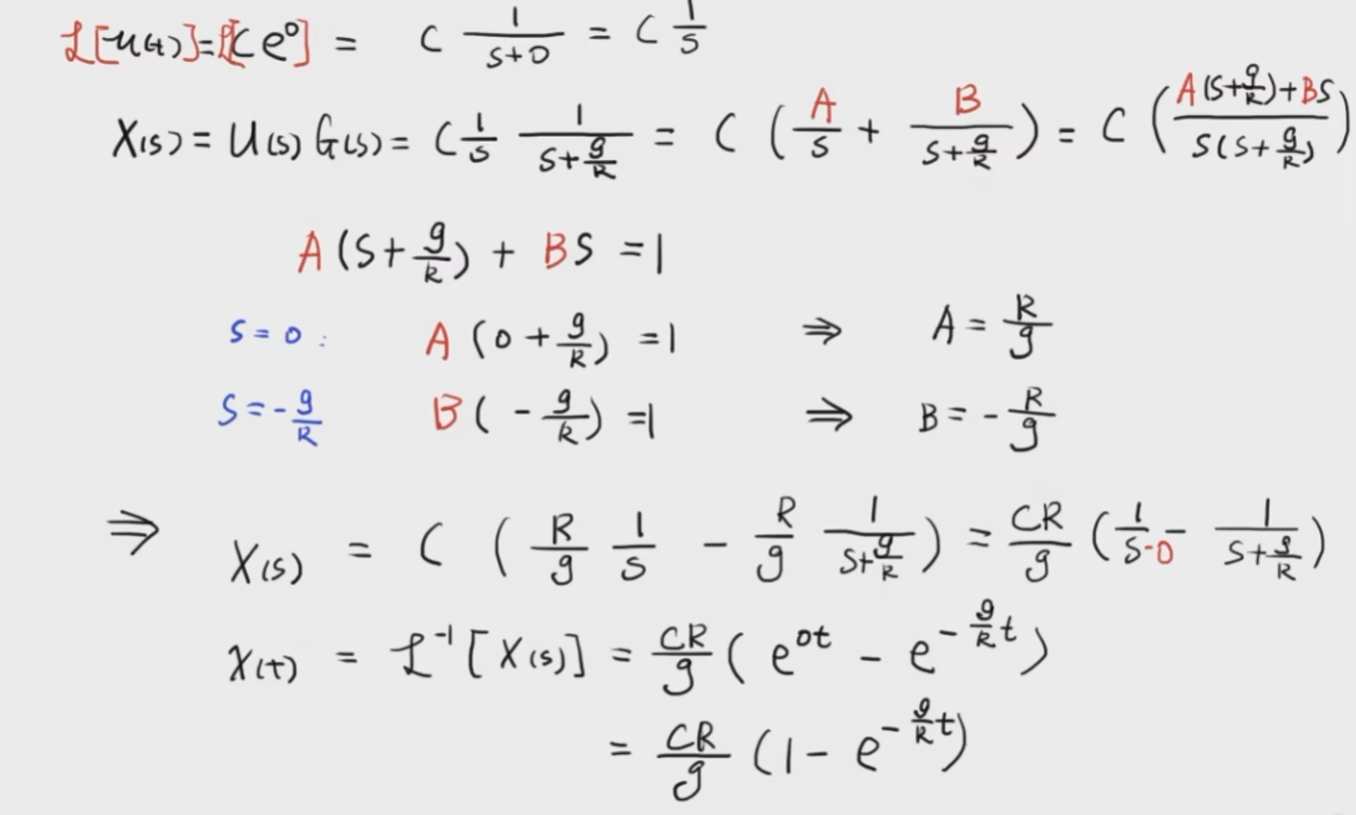 ℒ[u(t)]=ℒ[Ce⁰] = C 1/(s+0) = C 1/s
X(s) = U(s) G(s) = C 1/s 1/(s+g/R) = C (A/s + B/(s+g/R)) = C ((A(s+g/R)+Bs)/(s(s+g/R)))
A(s+g/R) + Bs = 1
s=0: A(0+g/R) = 1 ⇒ A = R/g
s=-g/R B(-g/R) = 1 ⇒ B = -R/g
⇒ X(s) = C (R/g 1/s - R/g 1/(s+g/R)) = CR/g (1/(s-0) - 1/(s+g/R))
x(t) = ℒ⁻¹[X(s)] = CR/g (e^(0t) - e^(-g/R t))
= CR/g (1 - e^(-g/R t))